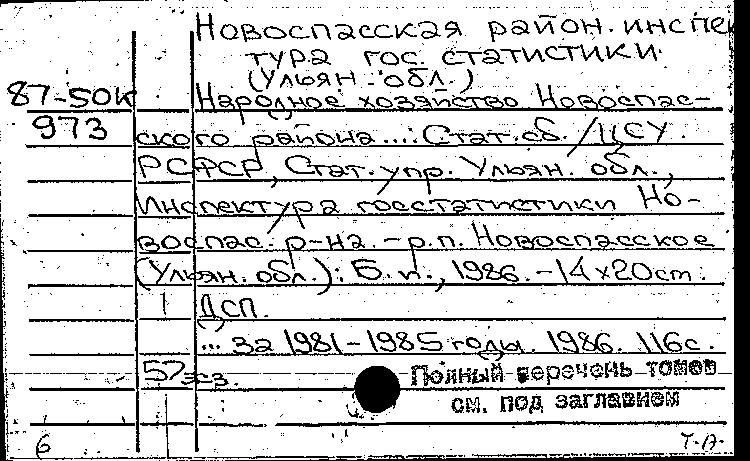 Новоспасская район. инспе
тура гос. статистики
(Ульян. обл.)
87-50к Народное хозяйство Новоспас-
973 ского района...: Стат. сб. / ЦСУ
РСФСР, Стат. упр. Ульян. обл.,
Инспектура госстатистики Но-
воспас. р-на. - р.п. Новоспасское
(Ульян. обл.): Б. и., 1986. - 14x20см.
ДСП.
... за 1981-1985 годы. 1986. 116с.
57 экз. Полный перечень томов
см. под заглавием
6 Т.А.